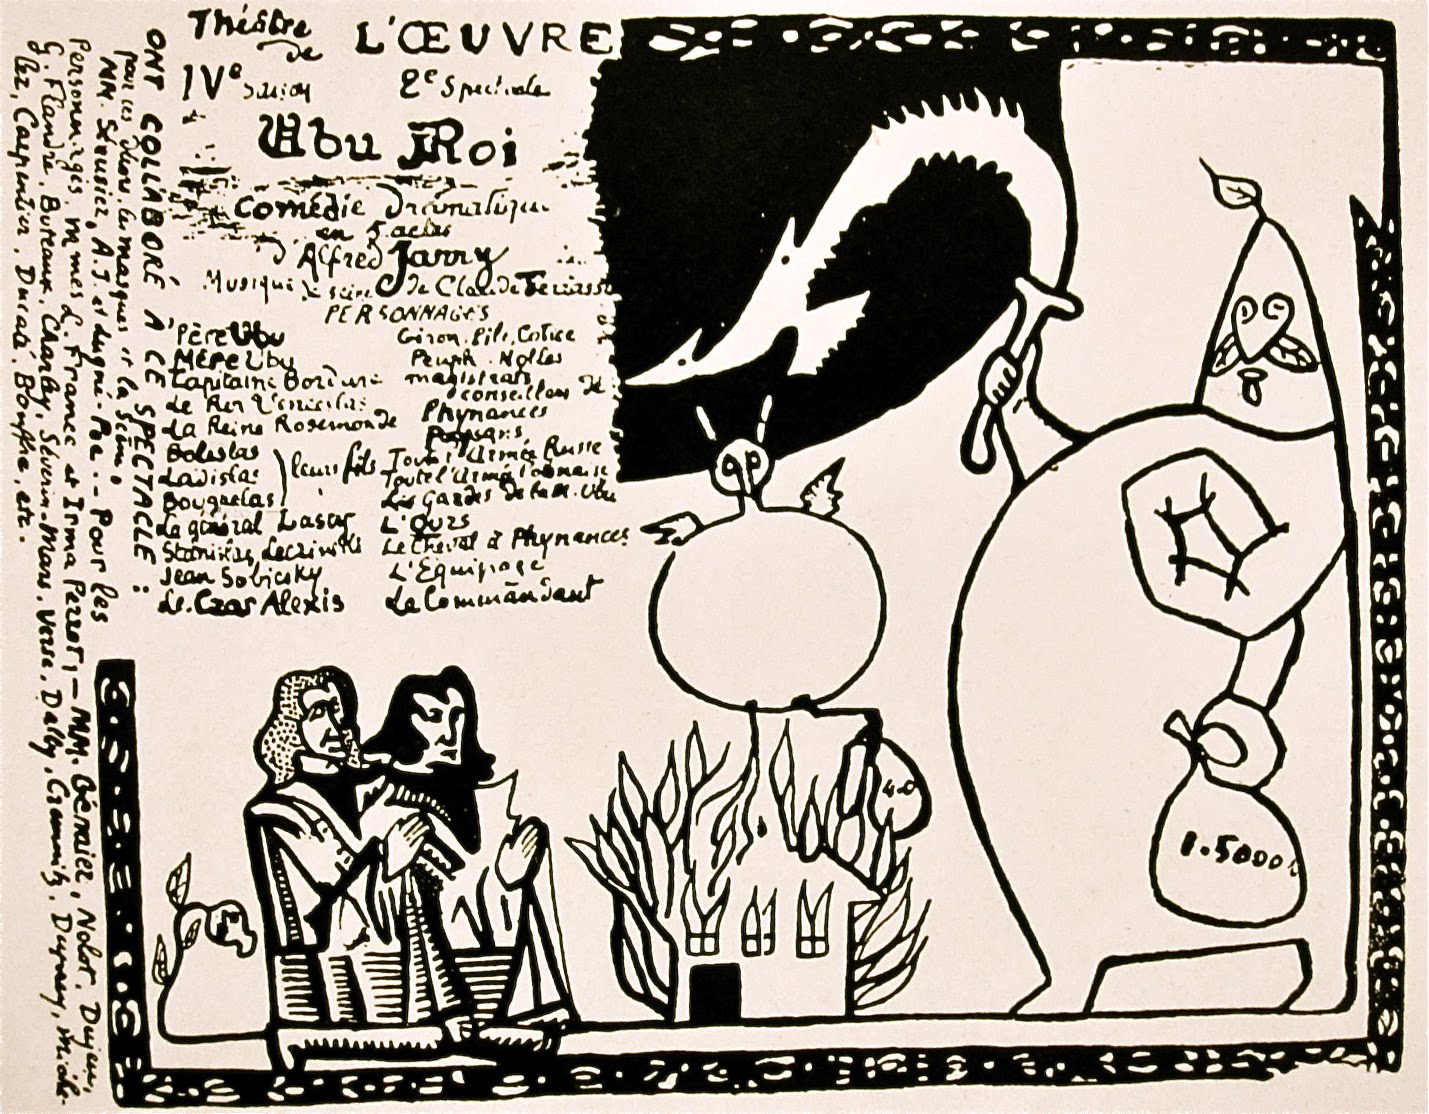 Théâtre
de
L'ŒUVRE
IVe Saison
2e Spectacle
Ubu Roi
Comédie Dramatique
en 5 actes
d'Alfred Jarry
Musique de scène de Claude Terrasse
PERSONNAGES
Père Ubu
Mère Ubu
Capitaine Bordure
Le Roi Venceslas
La Reine Rosemonde
Boleslas
Ladislas
Bougrelas
leurs fils
Le général Lascy
Stanislas Leczinski
Jean Sobiesky
Le Czar Alexis
Giron. Pile. Cotice
Peuple. Nobles
magistrats
conseillers de
Phynances
Paysans.
Toute l'Armée Russe
Toute l'Armée Polonaise
Les Gardes de la M. Ubu
L'Ours
Le Cheval à Phynances
L'Equipage
Le Commandant
ONT COLLABORÉ A CE SPECTACLE :
pour les décors, les masques et la scène
MM. Sérusier, A. J. et Lugné-Poe. - Pour les
Personnages, Mmes L. France et Irma Perrot; - MM. Gémier, Nolot, Dujeu,
G. Flandre, Buteaux, Charley, Séverin-Mars, Verse, Dally, Cremnitz, Duprey, Miche-
lez, Carpentier, Ducaté, Bonpha, etc.
4.0
1.5000